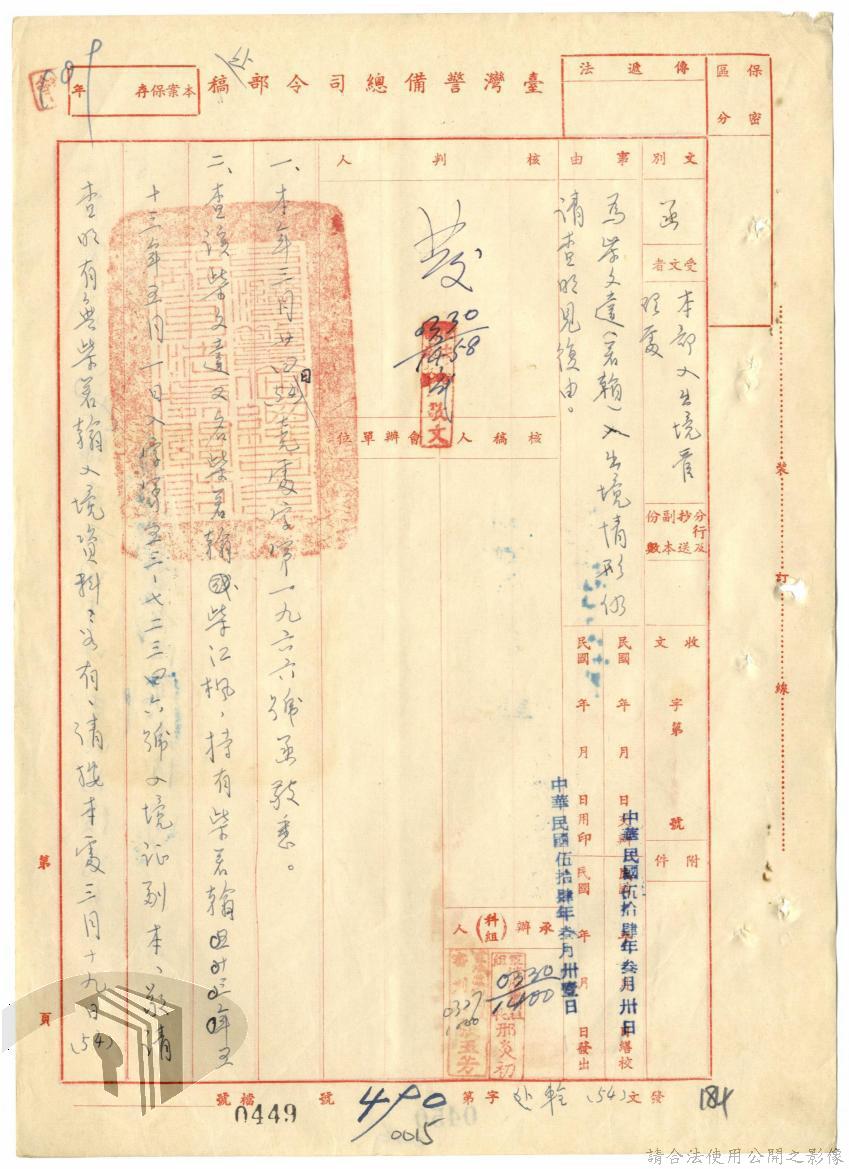 保密區分
傳遞法
臺灣警備總司令部稿
处
本案保存
年
文別
函
受文者
本部入出境管理處
分行及抄送副本份數
收文
字第
號
附件
事由
為柴文達(若翰)入出境情形仍
請查明見復由。
民國 年 月 日交辦
民國 年 月 日用印
民國 年 月 日繕校
民國 年 月 日發出
中華民國伍拾肆年叁月卅日
中華民國伍拾肆年叁月卅壹日
核判人
發
0330
1458
核稿人
會辦單位
承辦(科組)人
0330
1400
邢炎初
0327
一、本年三月廿四日(54)境處字第一九六六號函敬悉。
二、查該柴文達又名柴若翰或柴江楓,持有柴若翰四十三年五
十三年五月一日入字第五三、七二三四六號入境証副本、敬請
查明有無柴若翰入境資料;如有、請按本處三月十九日(54)
第
頁
發文(54)处
字
第
490
號
檔號
0449
0015
184
裝
訂
線
請合法使用公開之影像